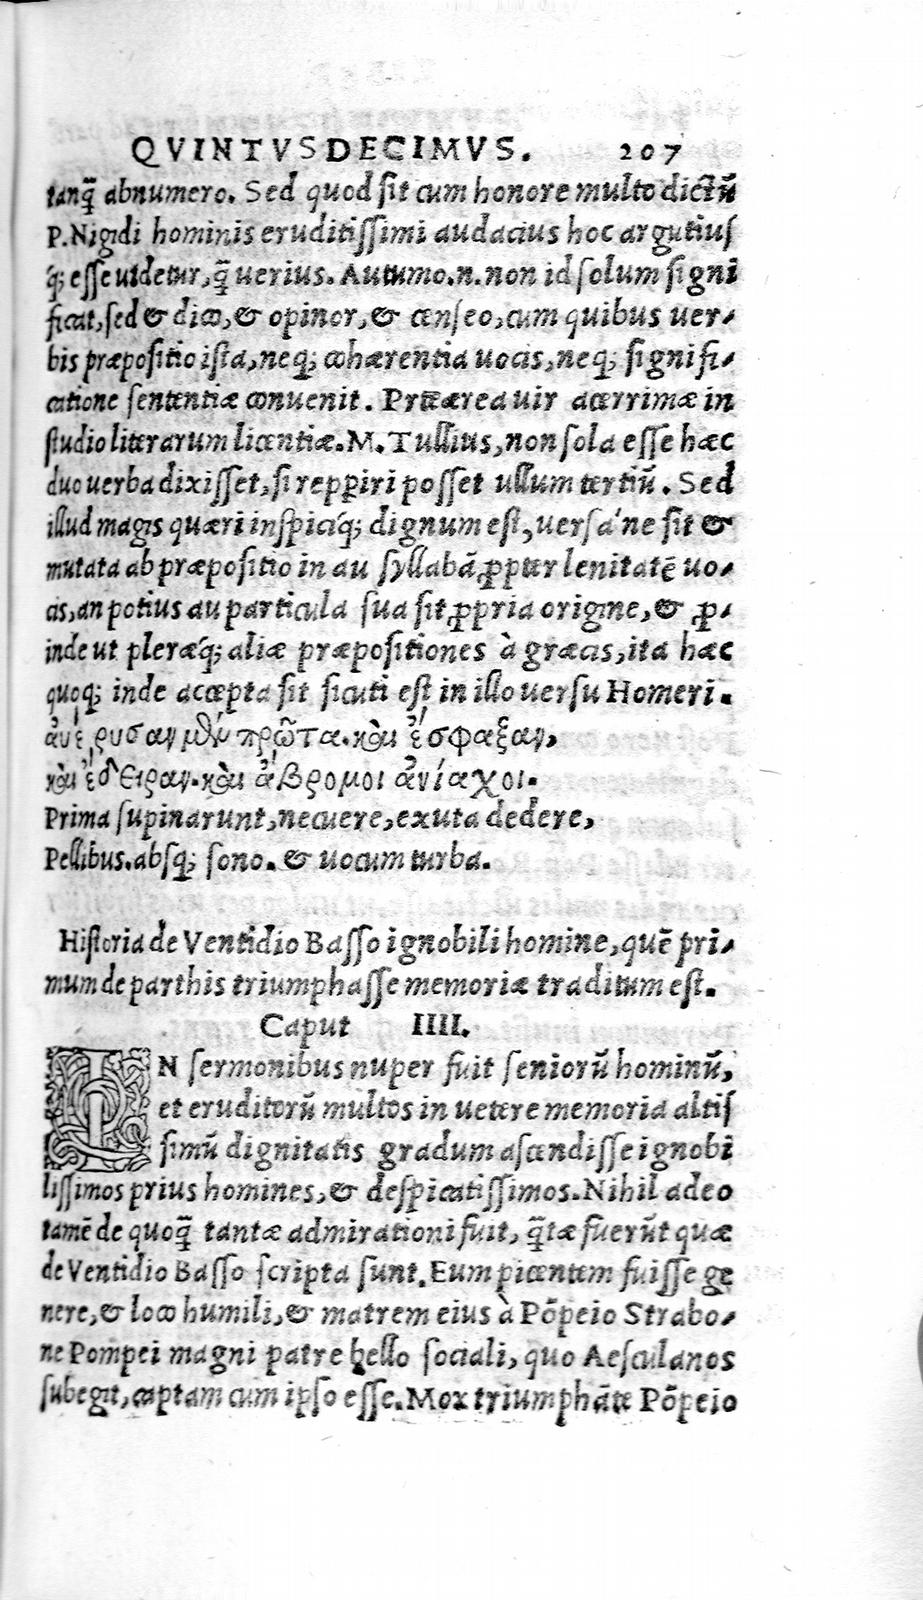 QVINTVSDECIMVS. 207
tanq̃ abnumero. Sed quod sit cum honore multo dictũ
P. Nigidi hominis eruditissimi audacius hoc argutius
q́; esse uidetur, q̃ uerius. Autumo.n. non id solum signi
ficat, sed & dico, & opinor, & censeo, cum quibus uer-
bis præpositio ista, neq; cohærentia uocis, neq; signifi-
catione sententiæ conuenit. Præterea uir acerrimæ in
studio literarum licentiæ. M. Tullius, non sola esse hæc
duo uerba dixisset, si repperiri posset ullum tertiũ. Sed
illud magis quæri inspiciq́; dignum est, uersa'ne sit &
mutata ab præpositio in au syllabã ꝓpter lenitatẽ uo-
cis, an potius au particula sua sit ꝓpria origine, & ꝓ-
inde ut pleræq́; aliæ præpositiones à græcis, ita hæc
quoq; inde accepta sit sicuti est in illo uersu Homeri.
ἀυέρυσαν μὲν πρῶτα. καὶ ἔσφαξαν,
καὶ ἔδειραν. καὶ ἄβρομοι ἀνίαχοι.
Prima supinarunt, necuere, exuta dedere,
Pellibus. absq; sono. & uocum turba.
Historia de Ventidio Basso ignobili homine, quẽ pri-
mum de parthis triumphasse memoriæ traditum est.
Caput IIII.
IN sermonibus nuper fuit seniorũ hominũ,
et eruditorũ multos in uetere memoria altis
simũ dignitatis gradum ascendisse ignobi
lissimos prius homines, & despicatissimos. Nihil adeo
tamẽ de quoq̃ tantæ admirationi fuit, q̃tæ fuerũt quæ
de Ventidio Basso scripta sunt. Eum picentem fuisse ge
nere, & loco humili, & matrem eius à Põpeio Strabo-
ne Pompei magni patre bello sociali, quo Aesculanos
subegit, captam cum ipso esse. Mox triumphãte Põpeio